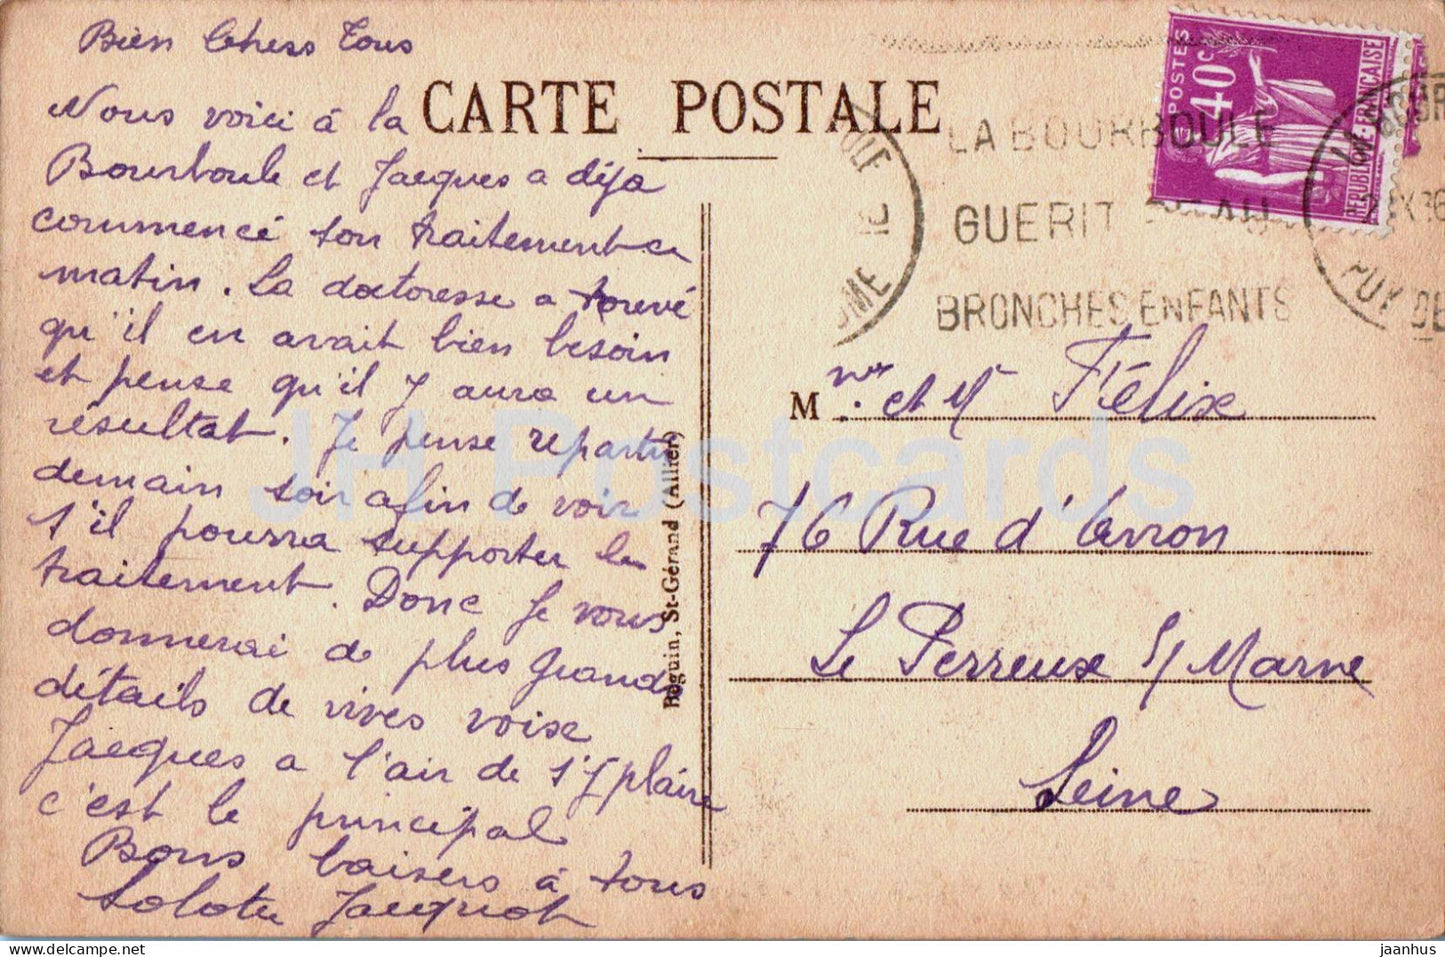 Bien Chers Tous
Nous voici à la
Bourboule et Jacques a déja
commencé son traitement ce
matin. La doctoresse a trouvé
qu'il en avait bien besoin
et pense qu'il y aura un
résultat. Je pense repartir
demain soir afin de voir
s'il pourra supporter le
traitement. Donc Je vous
donnerai de plus grands
détails de vives voix
Jacques a l'air de s'y plaire
c'est le principal
Bons baisers à tous
Jacquot
CARTE POSTALE
Béguin, St-Gérand (Allier)
POSTES
40c
REPUBLIQUE-FRANÇAISE
LA BOURBOULE
GUERIT
BRONCHES ENFANTS
PUY DE
M me. et Mr Félix
76 Rue d'Avron
Le Perreux S/ Marne
Seine
JH Postcards
jaanhus